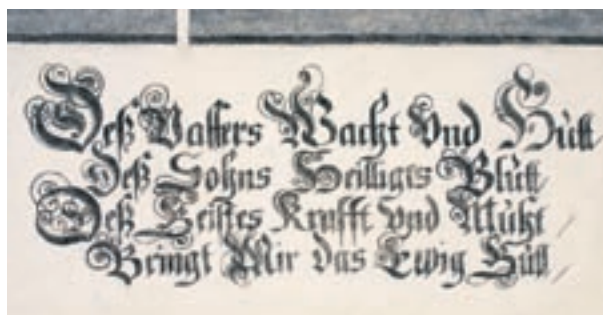 Deß Vatters Wacht Vnd Hütt
Deß Sohns Heilligts Blütt
Deß Geistes Krafft Vnd Müht /
Bringt Mir das Ewig Gütt /